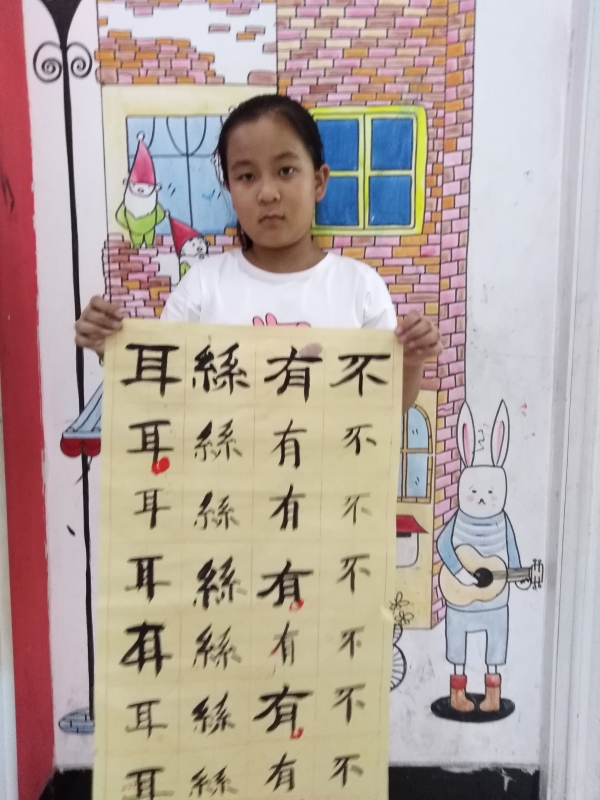 耳 絲 有 不
耳 絲 有 不
耳 絲 有 不
耳 絲 有 不
耳 絲 有 不
耳 絲 有 不
耳 絲 有 不